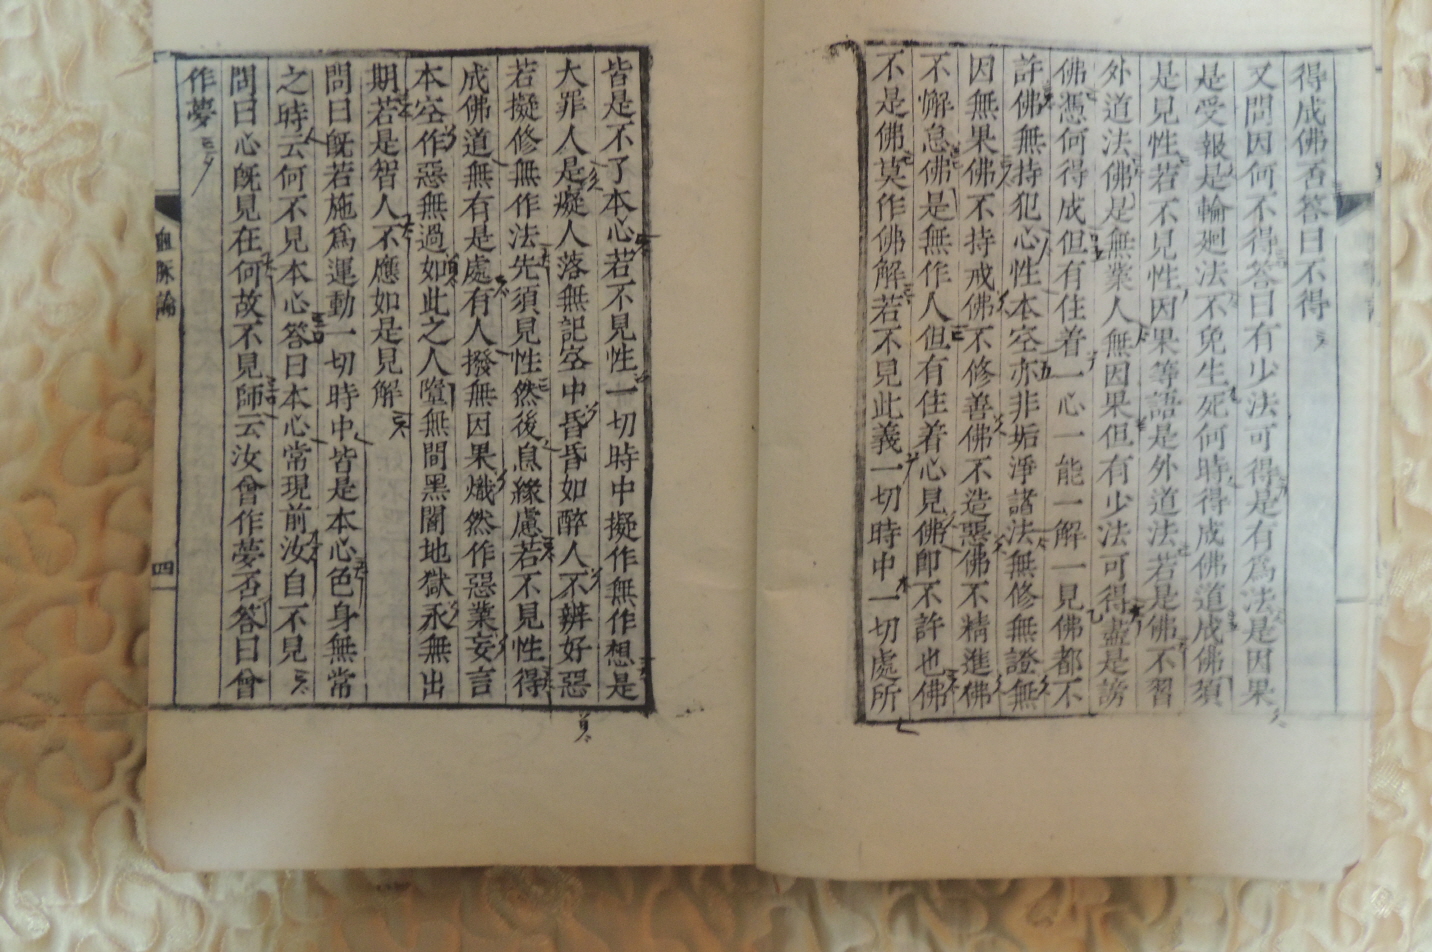 得成佛否答曰不得
又問因何不得答曰有少法可得是有爲法是因果
是受報是輪廻法不免生死何時得成佛道成佛須
是見性若不見性因果等語是外道法若是佛不習
外道法佛是無業人無因果但有少法可得盡是謗
佛憑何得成但有住着一心一能一解一見佛都不
許佛無持犯心性本空亦非垢淨諸法無修無證無
因無果佛不持戒佛不修善佛不造惡佛不精進佛
不懈怠佛是無作人但有住着心見佛即不許也佛
不是佛莫作佛解若不見此義一切時中一切處所
皆是不了本心若不見性一切時中擬作無作想是
大罪人是癡人落無記空中昏昏如醉人不辨好惡
若擬修無作法先須見性然後息緣慮若不見性得
成佛道無有是處有人撥無因果熾然作惡業妄言
本空作惡無過如此之人墮無間黑闇地獄永無出
期若是智人不應如是見解
問曰旣若施爲運動一切時中皆是本心色身無常
之時云何不見本心答曰本心常現前汝自不見
問曰心旣見在何故不見師云汝曾作夢否答曰曾
作夢
血脉論
四